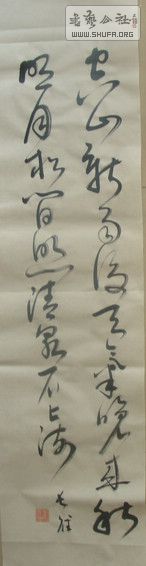 空山新雨后天气晚来秋
明月松间照清泉石上流
书艺公社
WWW.SHUFA.ORG